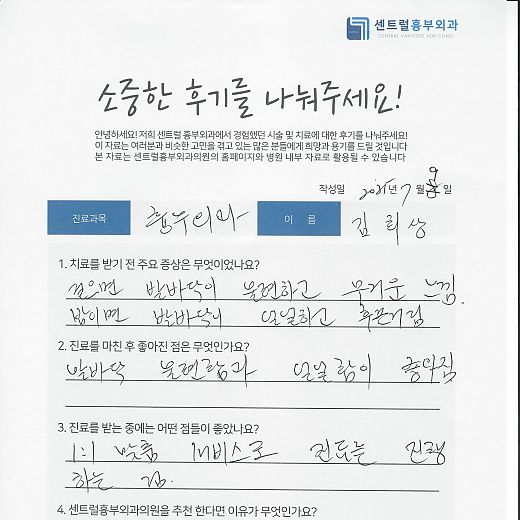 센트럴흉부외과
CENTRAL VARICOSE VEIN CLINIC
소중한 후기를 나눠주세요!
안녕하세요! 저희 센트럴 흉부외과에서 경험했던 시술 및 치료에 대한 후기를 나눠주세요!
이 자료는 여러분과 비슷한 고민을 겪고 있는 많은 분들에게 희망과 용기를 드릴 것입니다
본 자료는 센트럴흉부외과의원의 홈페이지와 병원 내부 자료로 활용될 수 있습니다
작성일 년 7 월 일
진료과목 흉부외과 이 름 김희상
1. 치료를 받기 전 주요 증상은 무엇이었나요?
걸으면 발바닥이 불편하고 무거운 느낌.
밤이면 발바닥이 얼얼하고 화끈거림
2. 진료를 마친 후 좋아진 점은 무엇인가요?
발바닥 불편함과 얼얼함이
3. 진료를 받는 중에는 어떤 점들이 좋았나요?
1:1 맞춤 서비스로 진료를 진행
하는 점.
4. 센트럴흉부외과의원을 추천 한다면 이유가 무엇인가요?